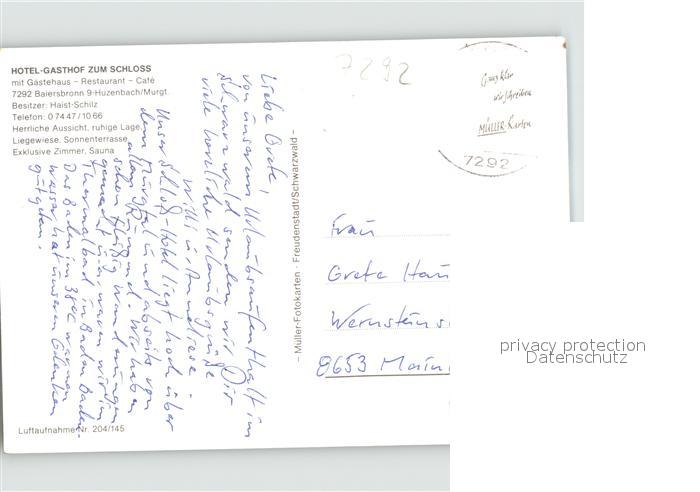 HOTEL-GASTHOF ZUM SCHLOSS
mit Gästehaus – Restaurant – Café
7292 Baiersbronn 9-Huzenbach/Murgt.
Besitzer: Haist-Schilz
Telefon: 0 74 47 / 10 66
Herrliche Aussicht, ruhige Lage
Liegewiese, Sonnenterrasse
Exklusive Zimmer, Sauna
Liebe Grete,
von unserem Urlaubsaufenthalt im
Schwarzwald senden wir Dir
viele herzliche Urlaubsgrüße
Willi u. Anneliese.
Unser Schloß-Hotel liegt hoch über
dem Murgtal und abseits von
allem. Wir haben
schon fleißig Wanderungen
gemacht u. waren im
Thermalbad in Baden Baden.
Das Baden im 38°C warmen
Wasser hat unseren
gut getan.
Luftaufnahme Nr. 204/145
– Müller-Fotokarten - Freudenstadt/Schwarzwald –
7292
Ganz klar
wir schreiben
MÜLLER-Karten
7292
Frau
Grete Hau
Wernsteins
8653 Mainl
privacy protection
Datenschutz